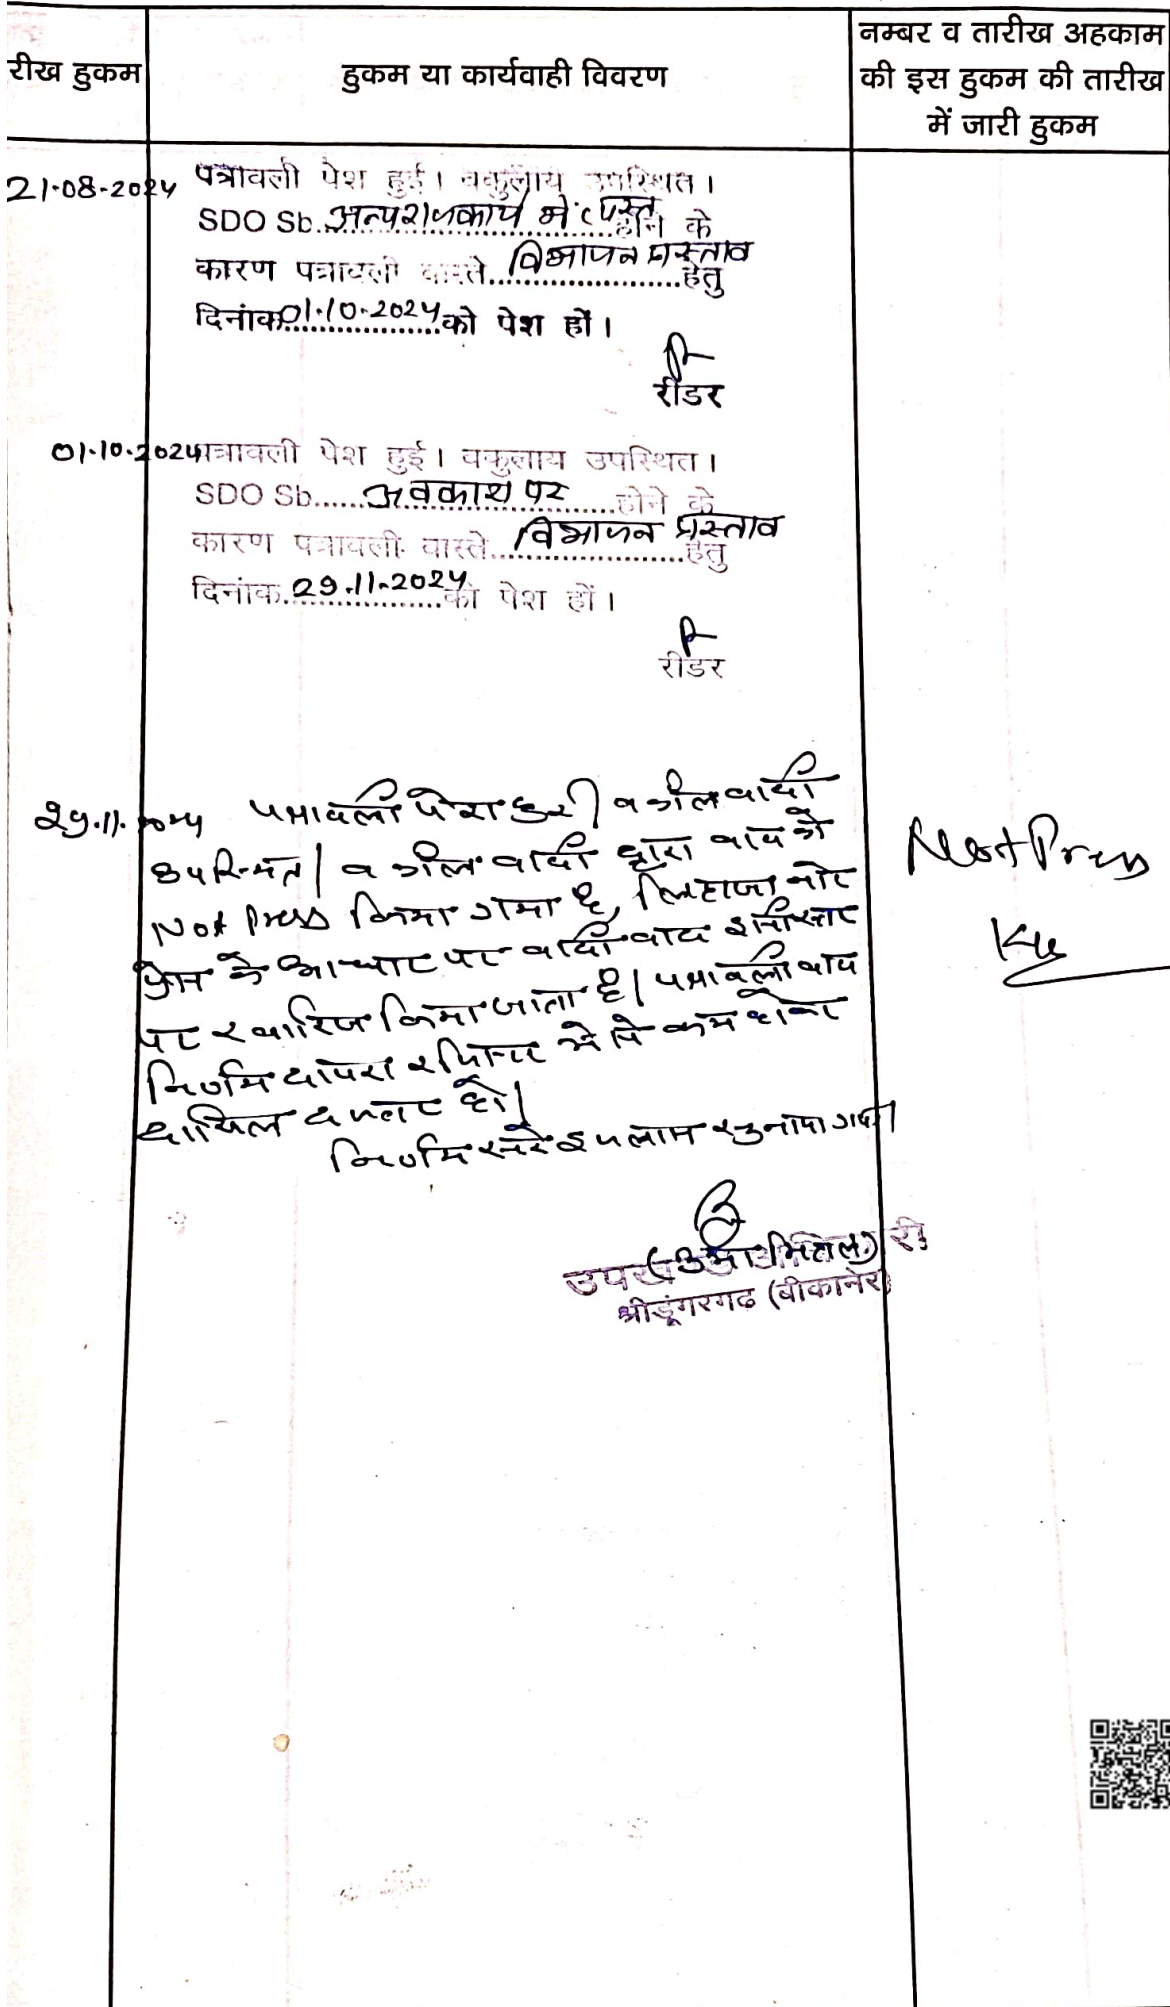 रीख हुकम
हुकम या कार्यवाही विवरण
नम्बर व तारीख अहकाम
की इस हुकम की तारीख
में जारी हुकम
21.08.2024 पत्रावली पेश हुई। वकुलाय उपस्थित।
SDO Sb. अन्य राजकार्य में व्यस्त होने के
कारण पत्रावली वास्ते विभाजन प्रस्ताव हेतु
दिनांक 01.10.2024 को पेश हों।
रीडर
01.10.2024 पत्रावली पेश हुई। वकुलाय उपस्थित।
SDO Sb. अवकाश पर होने के
कारण पत्रावली वास्ते विभाजन प्रस्ताव हेतु
दिनांक 29.11.2024 को पेश हों।
रीडर
29.11.2024 पत्रावली पेश हुई। वकील वादी
उपस्थित। वकील वादी द्वारा वाद को
Not Press किया गया है, लिहाजा नोट
प्रेस के आधार पर वादी वाद इसी स्तर
पर खारिज किया जाता है। पत्रावली बाद
निर्णय दायरा रजिस्टर से कम होकर
दाखिल दफ्तर हो।
निर्णय सरे इजलास सुनाया गया।
Not Press
(उमा मित्तल)
श्रीडूंगरगढ (बीकानेर)